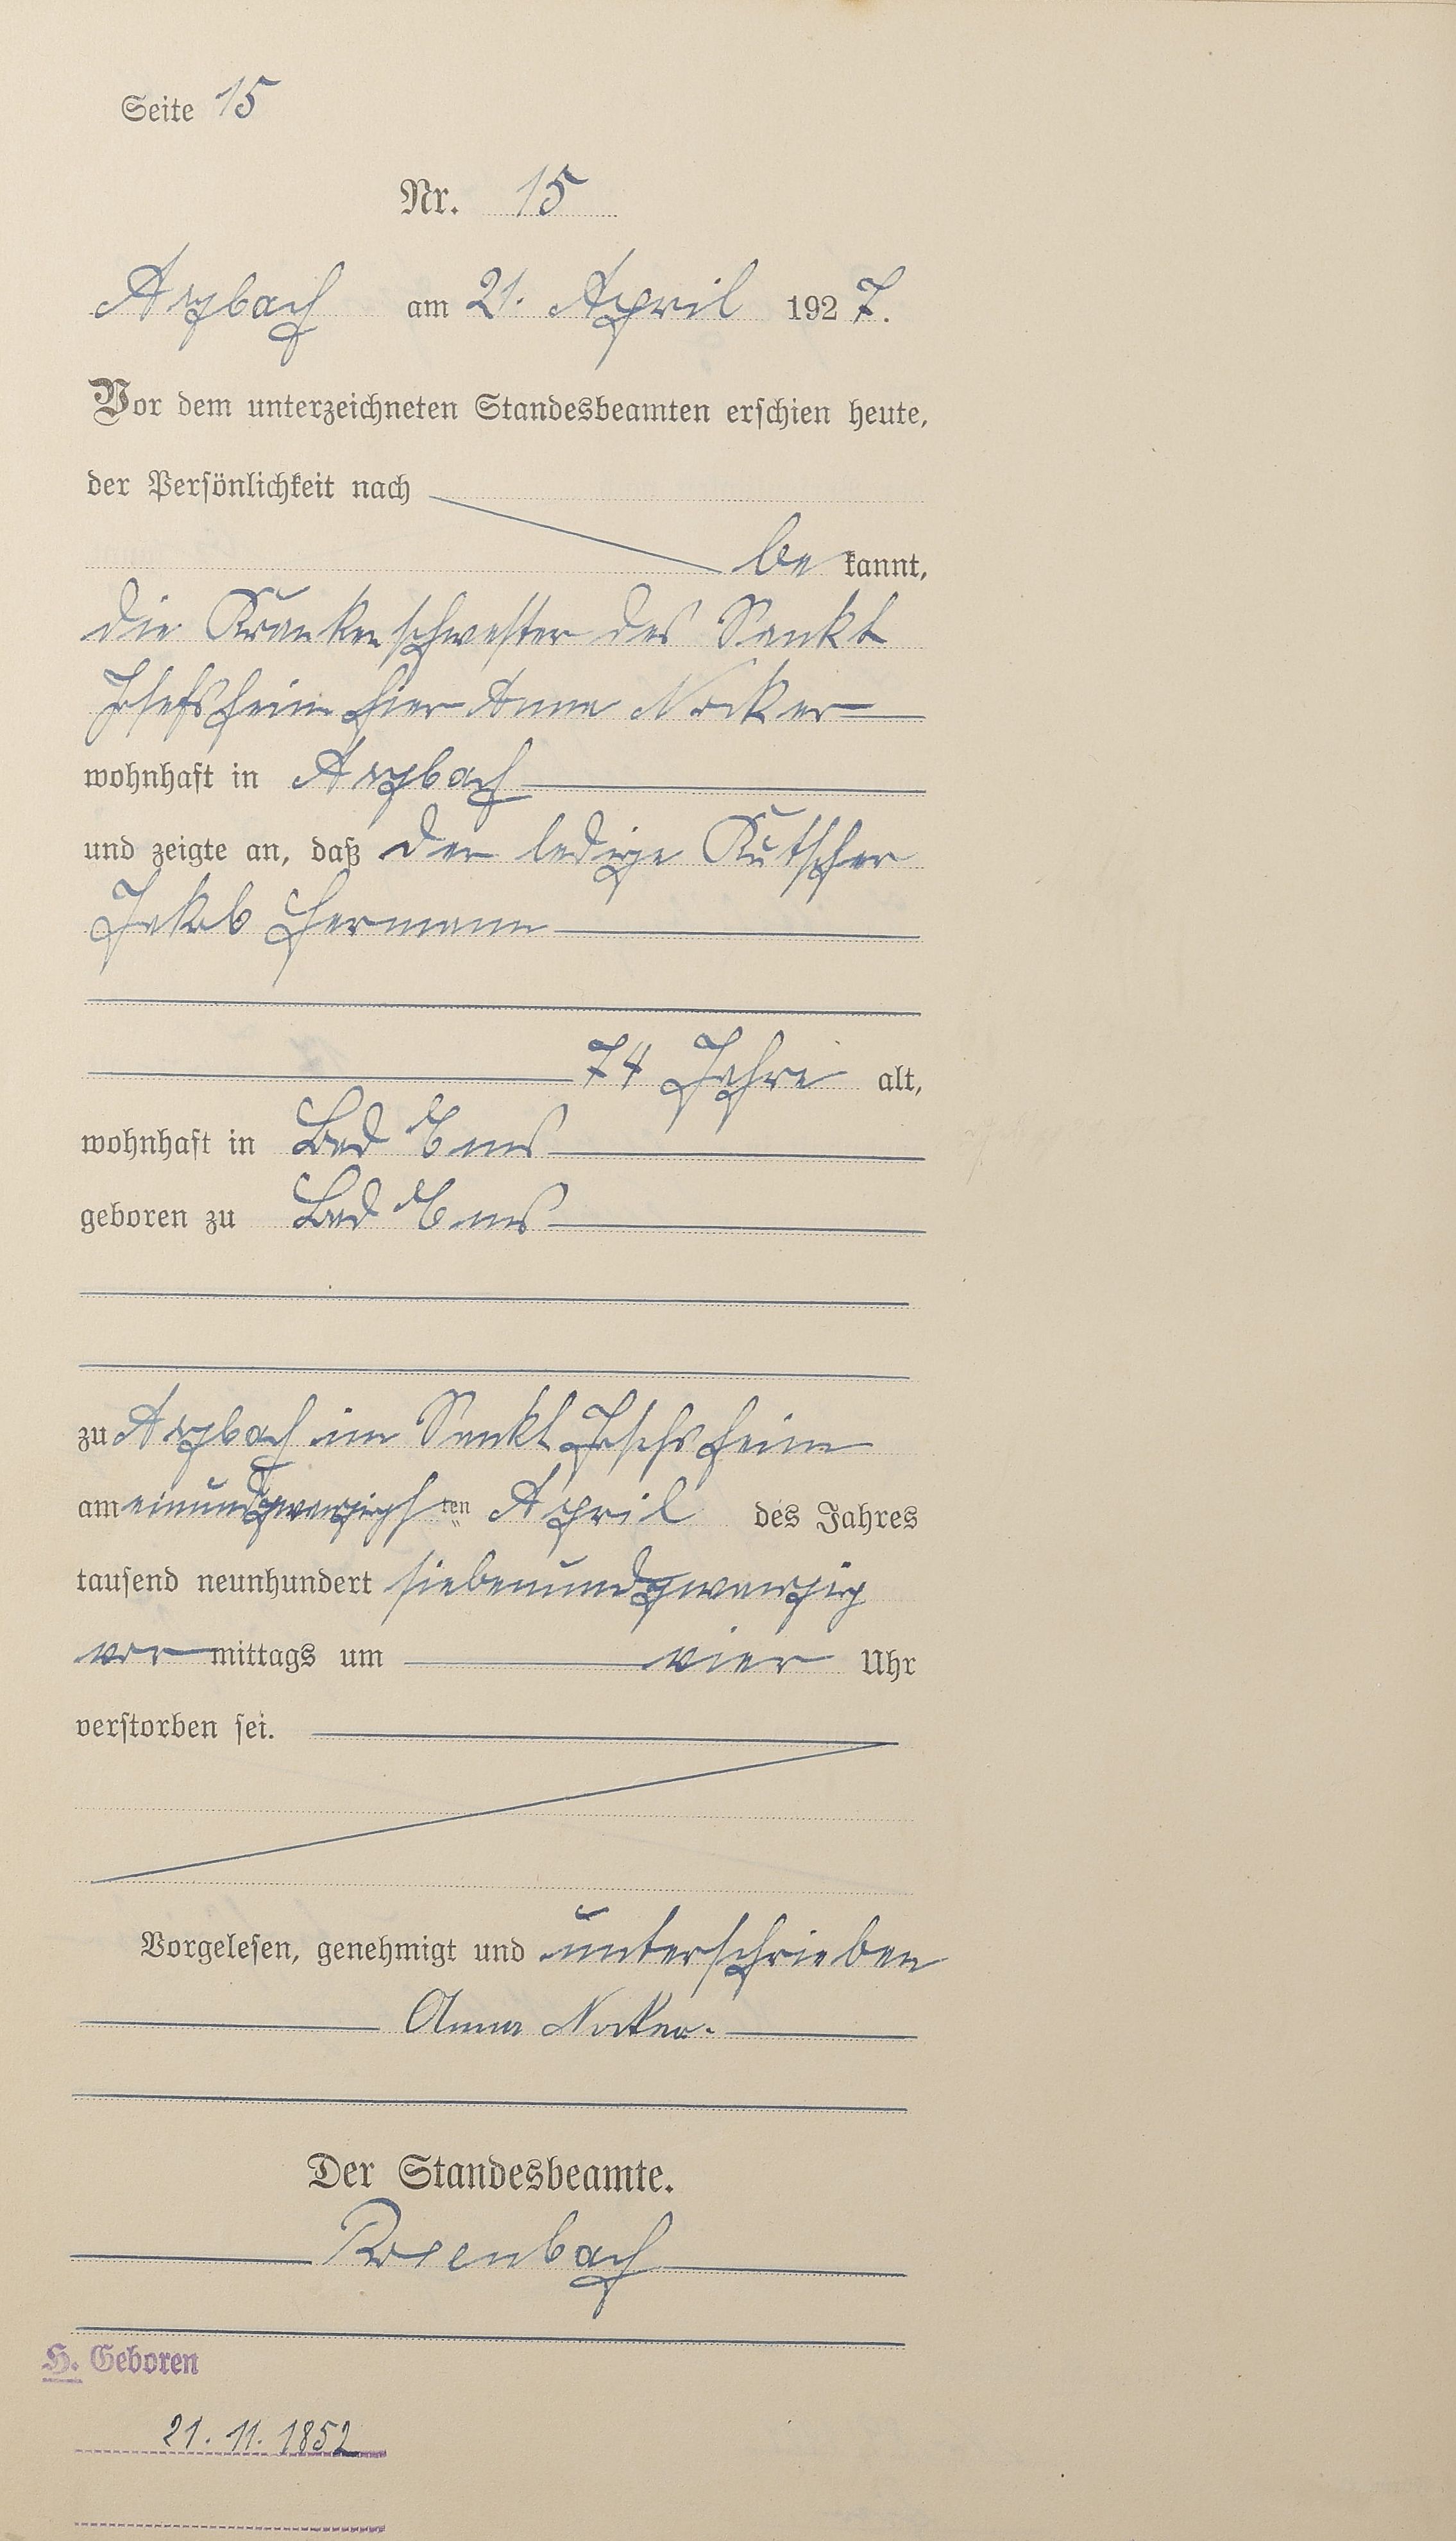 Seite 15
Nr. 15
Arzbach am 21. April 1927.
Vor dem unterzeichneten Standesbeamten erschien heute,
der Persönlichkeit nach
bekannt,
die Krankenschwester des Sankt
Josefsheim hier Anna Nocker
wohnhaft in Arzbach
und zeigte an, daß der ledige Kutscher
Jakob Hermann
74 Jahre alt,
wohnhaft in Bad Ems
geboren zu Bad Ems
zu Arzbach im Sankt Josefsheim
am einundzwanzigsten April des Jahres
tausend neunhundert siebenundzwanzig
vormittags um vier Uhr
verstorben sei.
Vorgelesen, genehmigt und unterschrieben
Anna Nocker.
Der Standesbeamte.
Rosenbach
H. Geboren
21. 11. 1852